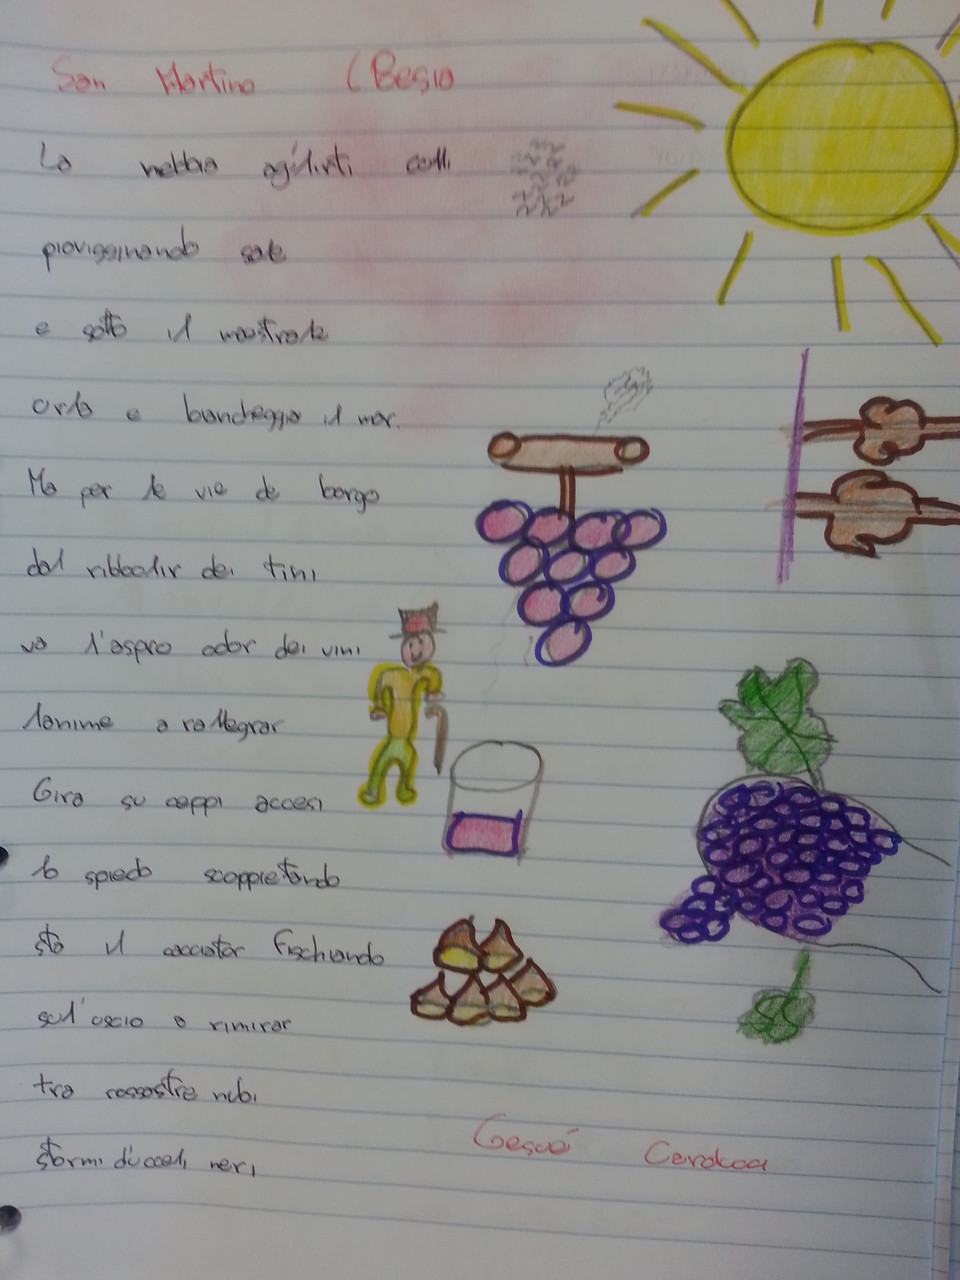 San Martino (Besia
La nebbia agl'irti colli
piovigginando sale
e sotto il maestrale
Urla e biancheggia il mar.
Ma per le vie de borgo
dal ribbolir dei tini
va l'aspro odor dei vini
lanime a rallegrar
Gira su ceppi accesi
lo spiedo scoppiettando
sta il cacciator fischiando
sul'uscio a rimirar
tra rossastre nubi
stormi d'uccelli neri
Gesuè Carducca